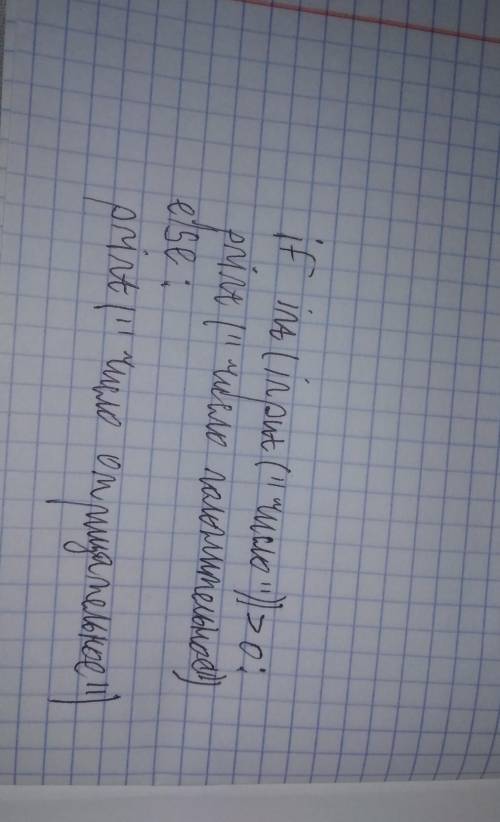 if int(input("число"))>0:
print("число положительное")
else:
print("число отрицательное")